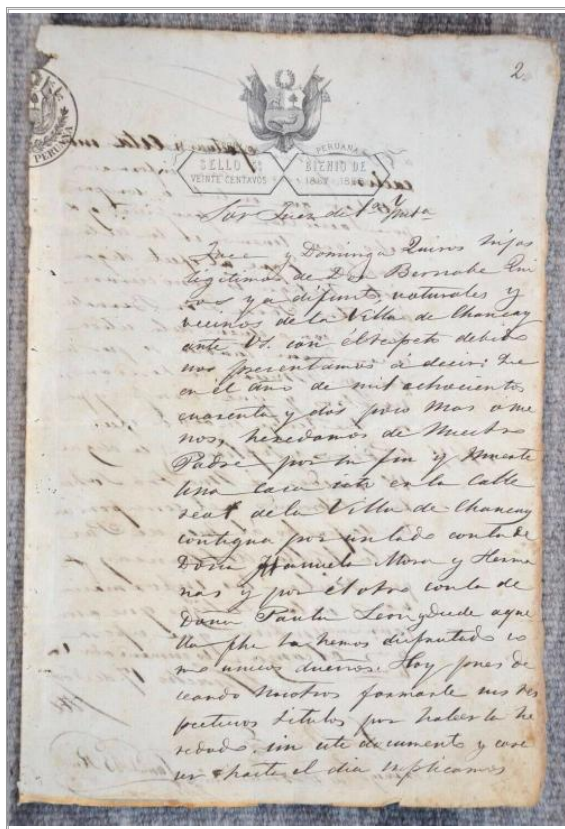 2
PERUANA
PERUANA
SELLO 
VEINTE CENTAVOS
BIENIO DE
Sor Juez de 1ra Insta
Jose y Dominga Quiros hijos
legitimos de Don Bernabe Qui
ros ya difunto naturales y
vecinos de la Villa de Chancay
ante VS. con el respeto debido
nos presentamos a decir: Que
en el año de mil ochocientos
cuarenta y dos poco mas ó me
nos, heredamos de Nuestro
Padre por su fin y muerte
una casa en la Calle
real de la Villa de Chancay
contigua por un lado con la de
Doña Manuela Mora y Herma
nas y por el otro con la de
Doña Paula Leon y desde aque
lla fha la hemos disfrutado co
mo unicos dueños. Hoy pues de
seando nosotros formarle sus res
pectivos titulos por haberla he
redado sin este documento y care
ser hasta el dia suplicamos